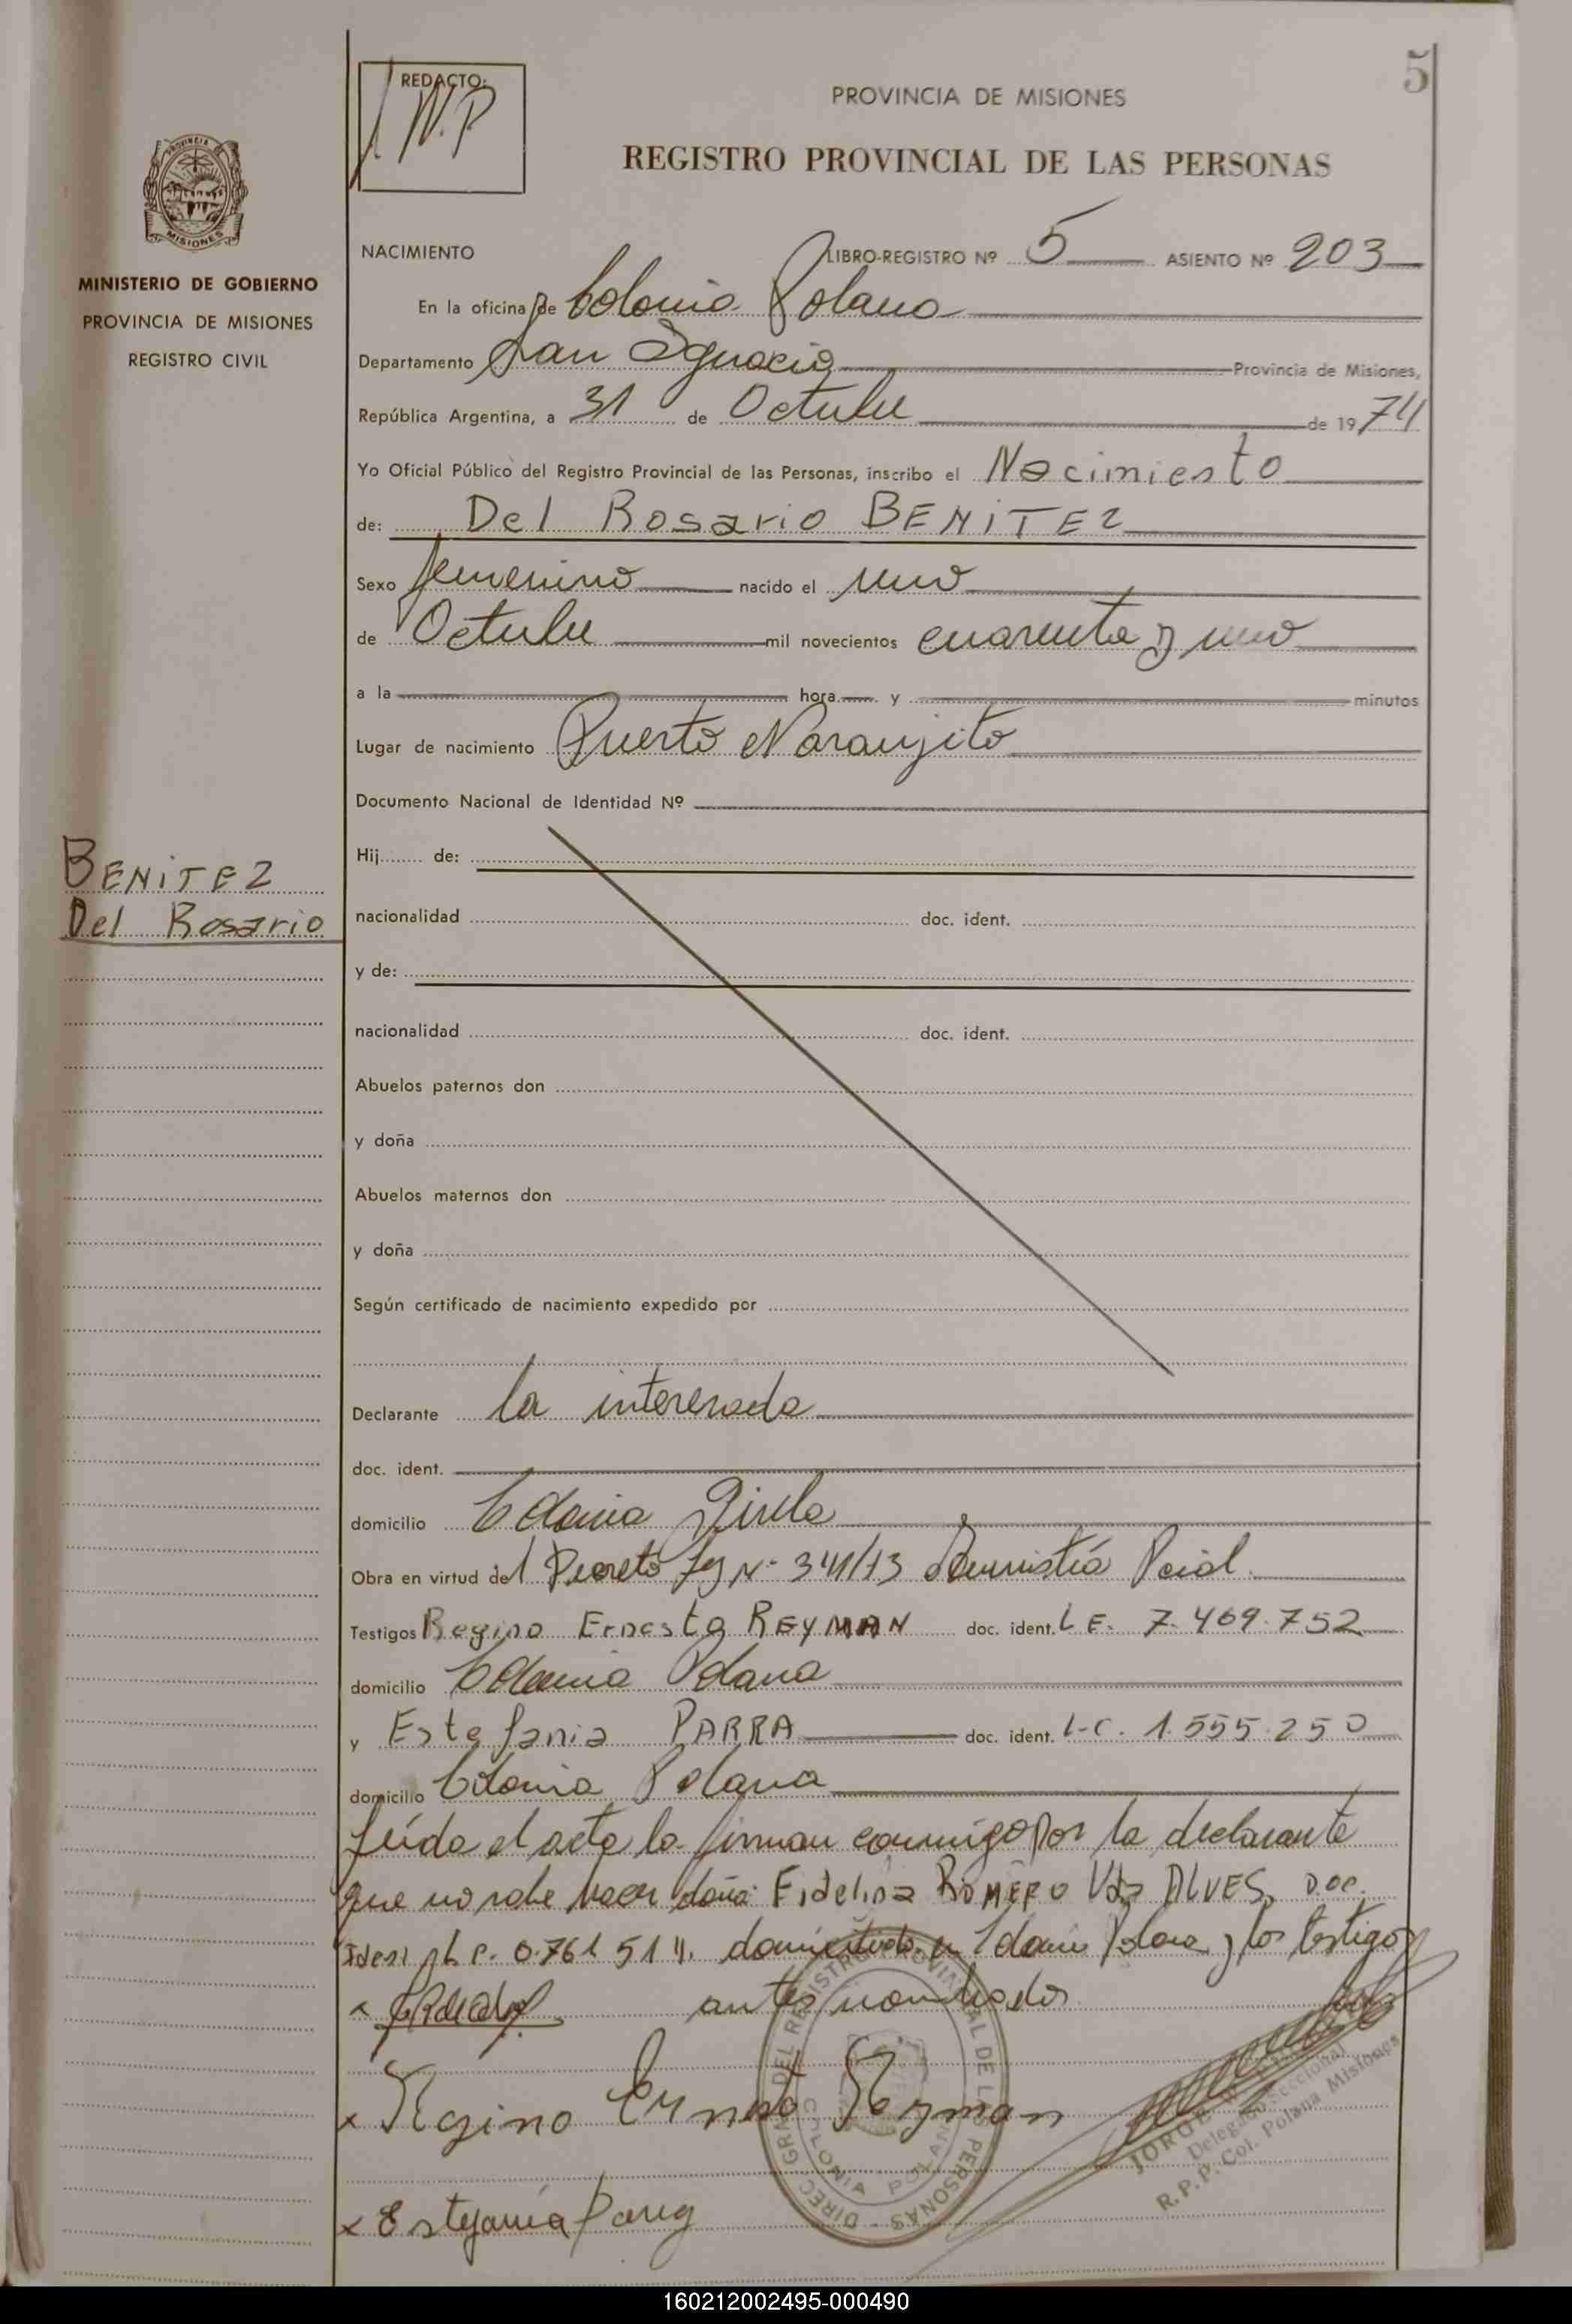 5
REDACTO:
N.P.
PROVINCIA DE MISIONES
REGISTRO PROVINCIAL DE LAS PERSONAS
PROVINCIA DE
MISIONES
MINISTERIO DE GOBIERNO
PROVINCIA DE MISIONES
REGISTRO CIVIL
NACIMIENTO LIBRO-REGISTRO Nº 5 ASIENTO Nº 203
En la oficina de Colonia Polana
Departamento San Ignacio Provincia de Misiones,
República Argentina, a 31 de Octubre de 1974
Yo Oficial Público del Registro Provincial de las Personas, inscribo el Nacimiento
de: Del Rosario BENITEZ
Sexo femenino nacido el uno
de Octubre mil novecientos cuarenta y uno
a la hora y minutos
Lugar de nacimiento Puerto Naranjito
Documento Nacional de Identidad Nº
BENITEZ
Del Rosario
Hij de:
nacionalidad doc. ident.
y de:
nacionalidad doc. ident.
Abuelos paternos don
y doña
Abuelos maternos don
y doña
Según certificado de nacimiento expedido por
Declarante la interesada
doc. ident.
domicilio Colonia Gisela
Obra en virtud del Decreto Ley Nº 341/73 Amnistía Pcial.
Testigos Regino Ernesto REYMAN doc. ident. L E. 7.469.752
domicilio Colonia Polana
y Estefania PARRA doc. ident. L-C. 1.555.250
domicilio Colonia Polana
Leída el acta la firman conmigo por la declarante
que no sabe hacer doña: Fidelina ROMERO Vaz ALVES, Doc.
Ident. L C. 0.761.514. domiciliada en Colonia Polana y los testigos
antes nombrados
x
x Regino Ernesto Reyman
x Estefania Parra
DIREC. GRAL. DEL REGISTRO PROVINCIAL DE LAS PERSONAS -
COLONIA POLANA
JORGE
Delegado Seccional
R.P.P. Col. Polana Misiones
160212002495-000490